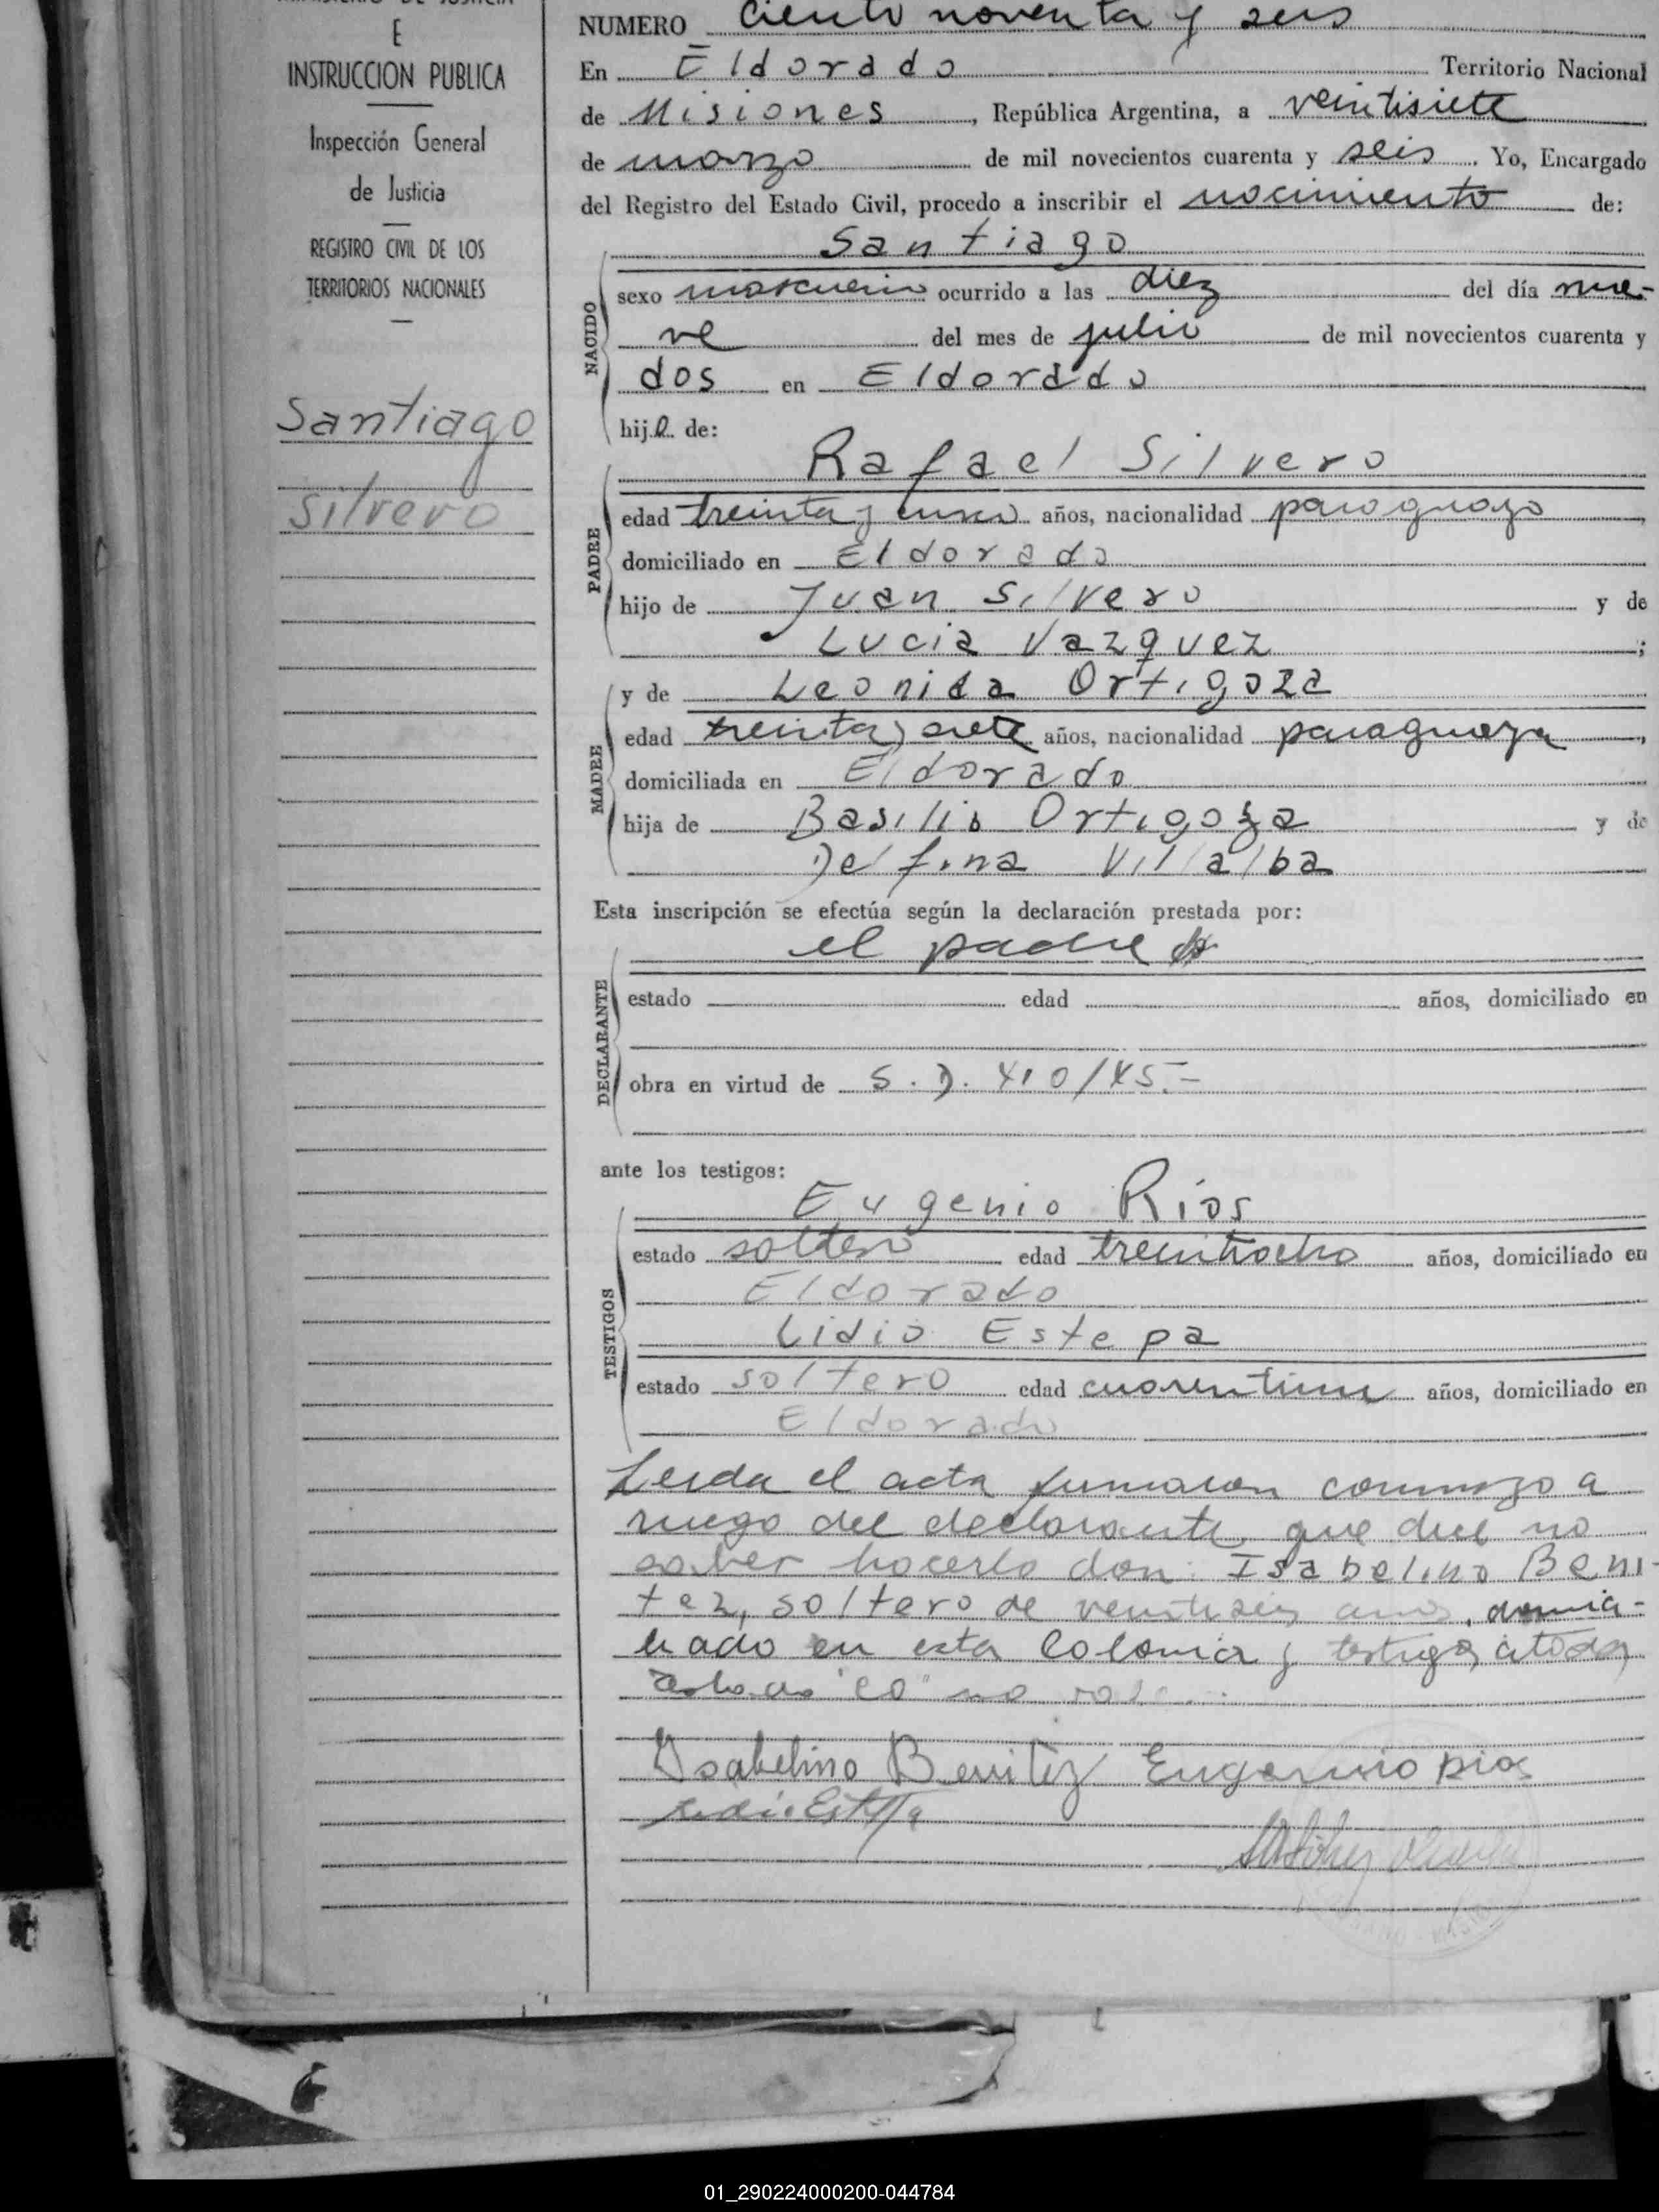 E
INSTRUCCION PUBLICA
Inspección General
de Justicia
REGISTRO CIVIL DE LOS
TERRITORIOS NACIONALES
Santiago
Silvero
NUMERO ciento noventa y seis
En Eldorado Territorio Nacional
de Misiones, República Argentina, a veintisiete
de marzo de mil novecientos cuarenta y seis. Yo, Encargado
del Registro del Estado Civil, procedo a inscribir el nacimiento de:
NACIDO
Santiago
sexo masculino ocurrido a las diez del día nue-
ve del mes de julio de mil novecientos cuarenta y
dos en Eldorado
hijo de:
PADRE
Rafael Silvero
edad treinta y cinco años, nacionalidad paraguayo,
domiciliado en Eldorado
hijo de Juan Silvero y de
Lucia Vazquez;
MADRE
y de Leonida Ortigoza
edad treinta y siete años, nacionalidad paraguaya,
domiciliada en Eldorado
hija de Basilio Ortigoza y de
Delfina Villalba
Esta inscripción se efectúa según la declaración prestada por:
DECLARANTE
el padre
estado edad años, domiciliado en
obra en virtud de S. D. 410/45.-
ante los testigos:
TESTIGOS
Eugenio Ríos
estado soltero edad treintiocho años, domiciliado en
Eldorado
Lidio Estepa
estado soltero edad cuarentiun años, domiciliado en
Eldorado
Leida el acta firmaron conmigo a
ruego del declarante que dice no
saber hacerlo don: Isabelino Beni-
tez, soltero de veintiseis años, domici-
liado en esta Colonia y testigos citados
no
Ysabelino Benitez Eugenio Rios
Lidio Estepa
01_290224000200-044784